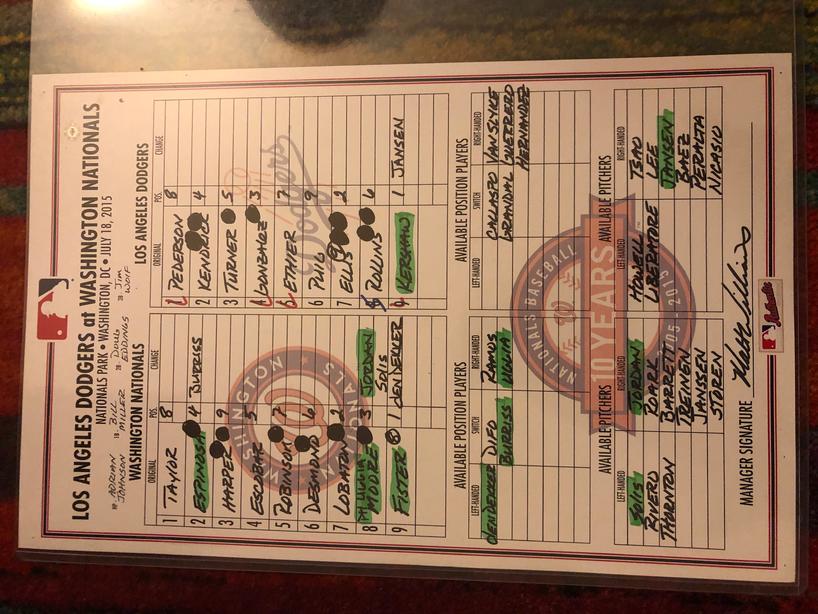 LOS ANGELES DODGERS at WASHINGTON NATIONALS
NATIONALS PARK • WASHINGTON, DC • JULY 18, 2015
HP ADRIAN JOHNSON 1B BILL MILLER 2B DOUG EDDINGS 3B JIM WOLF
WASHINGTON NATIONALS
ORIGINAL POS. CHANGE
1 TAYLOR 8
2 ESPINOSA 4 BURRISS
3 HARPER 9
4 ESCOBAR 5
5 ROBINSON 7
6 DESMOND 6
7 LOBATON 2
8 PH UGGLA MOORE 3 JORDAN SOLIS
9 FISTER 1 DENDEKKER
LOS ANGELES DODGERS
ORIGINAL POS. CHANGE
L 1 PEDERSON 8
2 KENDRICK 4
3 TURNER 5
L 4 GONZALEZ 3
L 5 ETHIER 7
6 PUIG 9
7 ELLIS 2
8 ROLLINS 6
9 KERSHAW 1 JANSEN
Dodgers
WASHINGTON NATIONALS
AVAILABLE POSITION PLAYERS
LEFT-HANDED SWITCH RIGHT-HANDED
DENDEKKER DIFO RAMOS
BURRISS UGGLA
AVAILABLE POSITION PLAYERS
LEFT-HANDED SWITCH RIGHT-HANDED
CALLASPO VAN SLYKE
GRANDAL GUERRERO
HERNANDEZ
AVAILABLE PITCHERS
LEFT-HANDED RIGHT-HANDED
SOLIS JORDAN
RIVERO ROARK
THORNTON BARRETT
TREINEN
JANSSEN
STOREN
AVAILABLE PITCHERS
LEFT-HANDED RIGHT-HANDED
HOWELL TSAO
LIBERATORE LEE
JANSEN
BAEZ
PERALTA
NICASIO
NATIONALS BASEBALL
10 YEARS
2005 - 2015
MANAGER SIGNATURE Matt Williams
Authentic